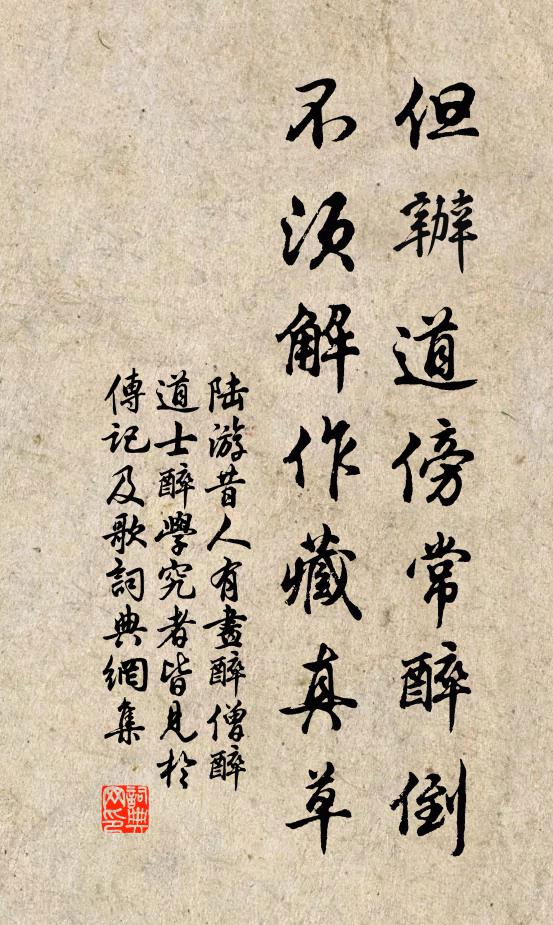 但辦道傍常醉倒
不須解作藏真草
陸游昔人有畫醉僧醉
道士醉學究者皆見於
傳記及歌詞典網集
詞典
网印